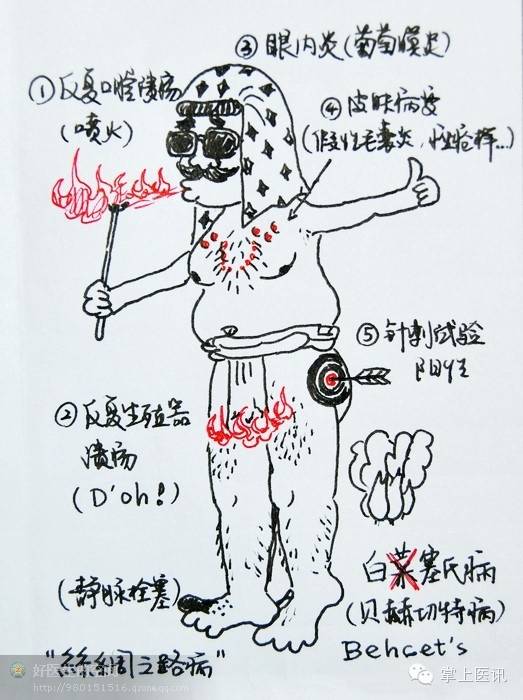 ③眼内炎(葡萄膜炎)
①反复口腔溃疡
(喷火)
④皮肤病变
(假性毛囊炎,痤疮样...)
⑤针刺试验
阳性
②反复生殖器
溃疡
(D'oh!)
白菜塞氏病
(静脉栓塞)
(贝赫切特病)
Behcet's
"丝绸之路病"
http://980151516.qzone.qq.com
掌上医讯